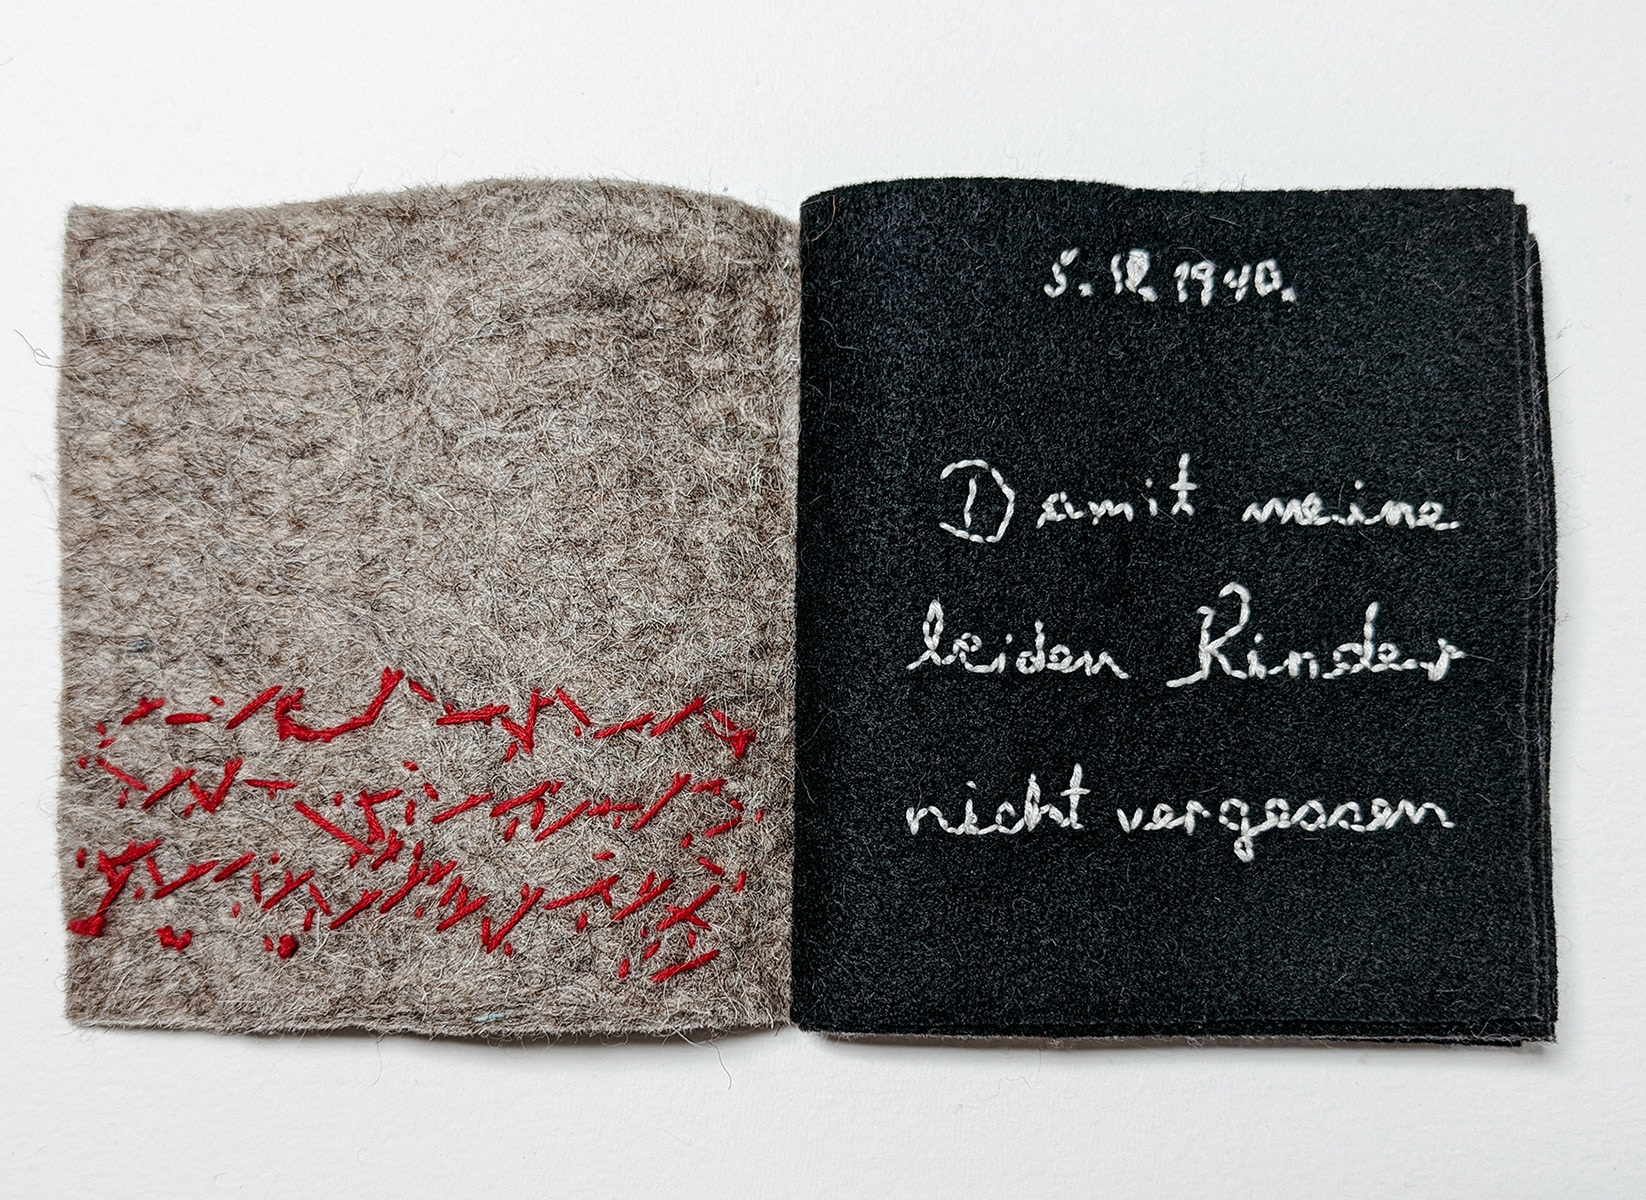 Damit meine
beiden Kinder
nicht vergessen